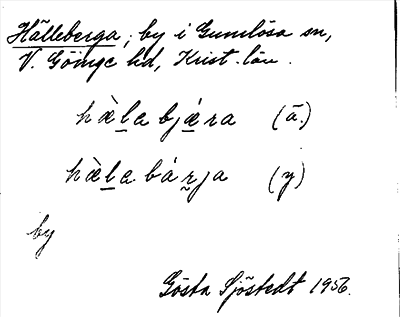 Hälleberga, by i Gumlösa sn,
V. Göinge hd, Krist. län.
hæ̀la bjǽra (ä.)
hæ̀la bárja (y)
by
Gösta Sjöstedt 1956.